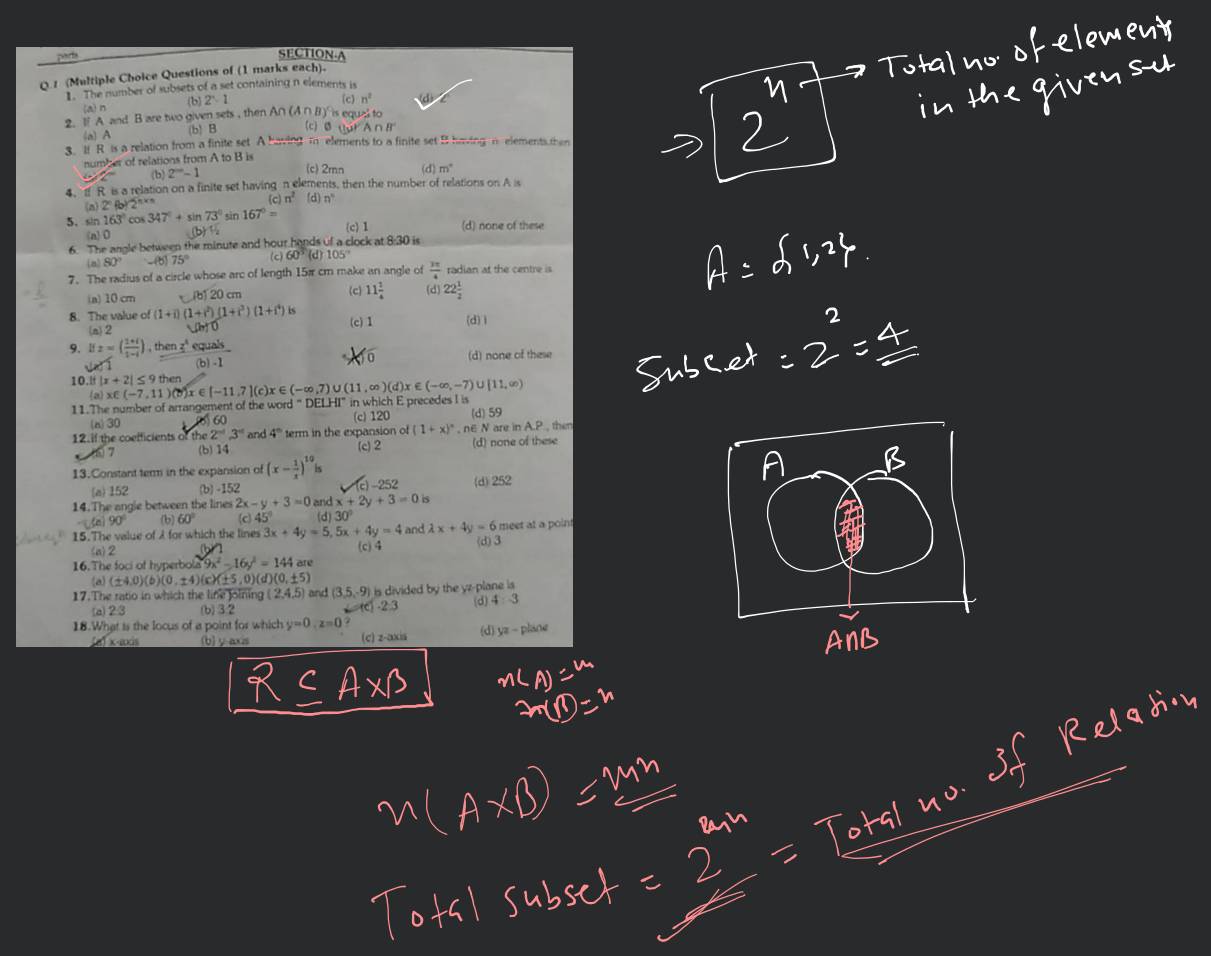 parts
SECTION-A
Q.1 (Multiple Choice Questions of (1 marks each)-
1. The number of subsets of a set containing n elements is
(a) n (b) 2ⁿ-1 (c) n² (d) 2ⁿ
2. If A and B are two given sets, then A∩(A∩B)ᶜ is equal to
(a) A (b) B (c) Ø (d) A∩Bᶜ
3. If R is a relation from a finite set A having m elements to a finite set B having n elements, then
number of relations from A to B is
(a) 2ᵐⁿ (b) 2ᵐⁿ-1 (c) 2mn (d) mⁿ
4. If R is a relation on a finite set having n elements, then the number of relations on A is
(a) 2ⁿ (b) 2ⁿˣⁿ (c) n² (d) nⁿ
5. sin 163° cos 347° + sin 73° sin 167° =
(a) 0 (b) ½ (c) 1 (d) none of these
6. The angle between the minute and hour hands of a clock at 8:30 is
(a) 80° (b) 75° (c) 60° (d) 105°
7. The radius of a circle whose arc of length 15π cm make an angle of 3π/4 radian at the centre is
(a) 10 cm (b) 20 cm (c) 11¼ (d) 22½
8. The value of (1+i) (1+i²) (1+i³) (1+i⁴) is
(a) 2 (b) 0 (c) 1 (d) i
9. If z = (1+i/1-i), then z⁴ equals
(a) 1 (b) -1 0 (d) none of these
10. If |x + 2| ≤ 9 then
(a) x∈ (-7,11) (b)x ∈ [-11,7] (c)x ∈ (-∞,7) ∪ (11,∞)(d)x ∈ (-∞,-7) ∪ [11,∞)
11. The number of arrangement of the word " DELHI" in which E precedes I is
(a) 30 (b) 60 (c) 120 (d) 59
12. If the coefficients of the 2ⁿᵈ, 3ʳᵈ and 4ᵗʰ term in the expansion of (1 + x)ⁿ, n∈ N are in A.P., then
(a) 7 (b) 14 (c) 2 (d) none of these
13. Constant term in the expansion of (x - 1/x)¹⁰ is
(a) 152 (b) -152 (c) -252 (d) 252
14. The angle between the lines 2x - y + 3 =0 and x + 2y + 3 = 0 is
(a) 90° (b) 60° (c) 45° (d) 30°
15. The value of λ for which the lines 3x + 4y = 5, 5x + 4y = 4 and λx + 4y = 6 meet at a point
(a) 2 (b) 1 (c) 4 (d) 3
16. The foci of hyperbola 9x² - 16y² = 144 are
(a) (±4,0)(b)(0,±4)(c)(±5,0)(d)(0,±5)
17. The ratio in which the line joining (2,4,5) and (3,5,-9) is divided by the yz-plane is
(a) 2:3 (b) 3:2 (c) -2:3 (d) 4:-3
18. What is the locus of a point for which y=0, z=0?
(a) x-axis (b) y-axis (c) z-axis (d) yz - plane
2ⁿ → Total no. of elements
in the given set
A = {1,2}.
Subset = 2² = 4
A B
A∩B
R ⊆ A×B
n(A) = m
n(B) = n
n(A×B) = mn
Total subset = 2ᵐⁿ = Total no. of Relation